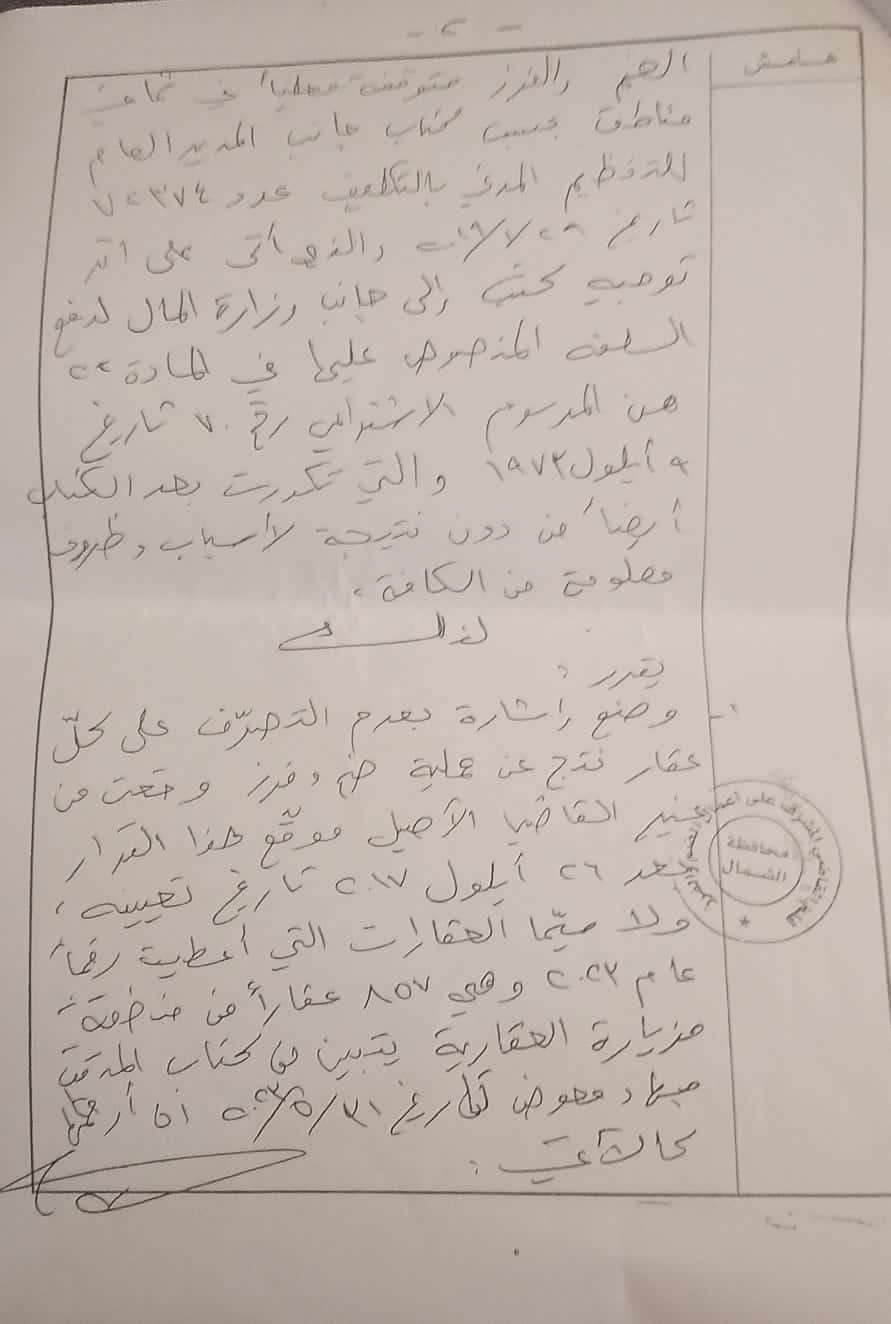 - ٢ -
هامش
الضم والفرز متوقفة فعلياً في ثماني
مناطق بحسب كتاب جانب المدير العام
للتنظيم المدني بالتكليف عدد
تاريخ والذي أتى على اثر
توجيه كتب إلى جانب وزارة المال لدفع
السلفة المنصوص عليها في المادة ٢٢
من المرسوم الاشتراعي رقم ٧٠ تاريخ
٩ أيلول ١٩٨٣ والتي تكررت بعد الكتاب
أيضاً من دون نتيجة لأسباب وظروف
معلومة من الكافة.
لذلك
يقرر:
١- وضع إشارة بعدم التصرّف على كلّ
عقار نتج عن عملية ضم وفرز وقعت من
غير القاضي الأصيل موقّع هذا القرار
بعد ٢٦ أيلول ٢٠١٧ تاريخ تعيينه،
ولا سيّما العقارات التي أعطيت رقماً
عام ٢٠٢٣ وهي ٨٥٧ عقاراً من منطقة
مزيارة العقارية يتبين من كتاب المدقق
معوض تاريخ ٣١/٥/٢٠٢٣ أن أرقامها
كالآتي:
محافظة
الشمال